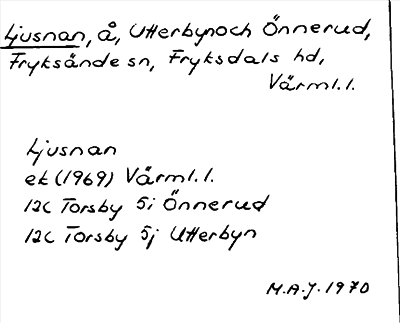 Ljusnan, å, Utterbyn och Önnerud,
Fryksände sn, Fryksdals hd,
Värml. l.
Ljusnan
ek (1969) Värml. l.
12C Torsby 5i Önnerud
12C Torsby 5j Utterbyn
M.A.J. 1970